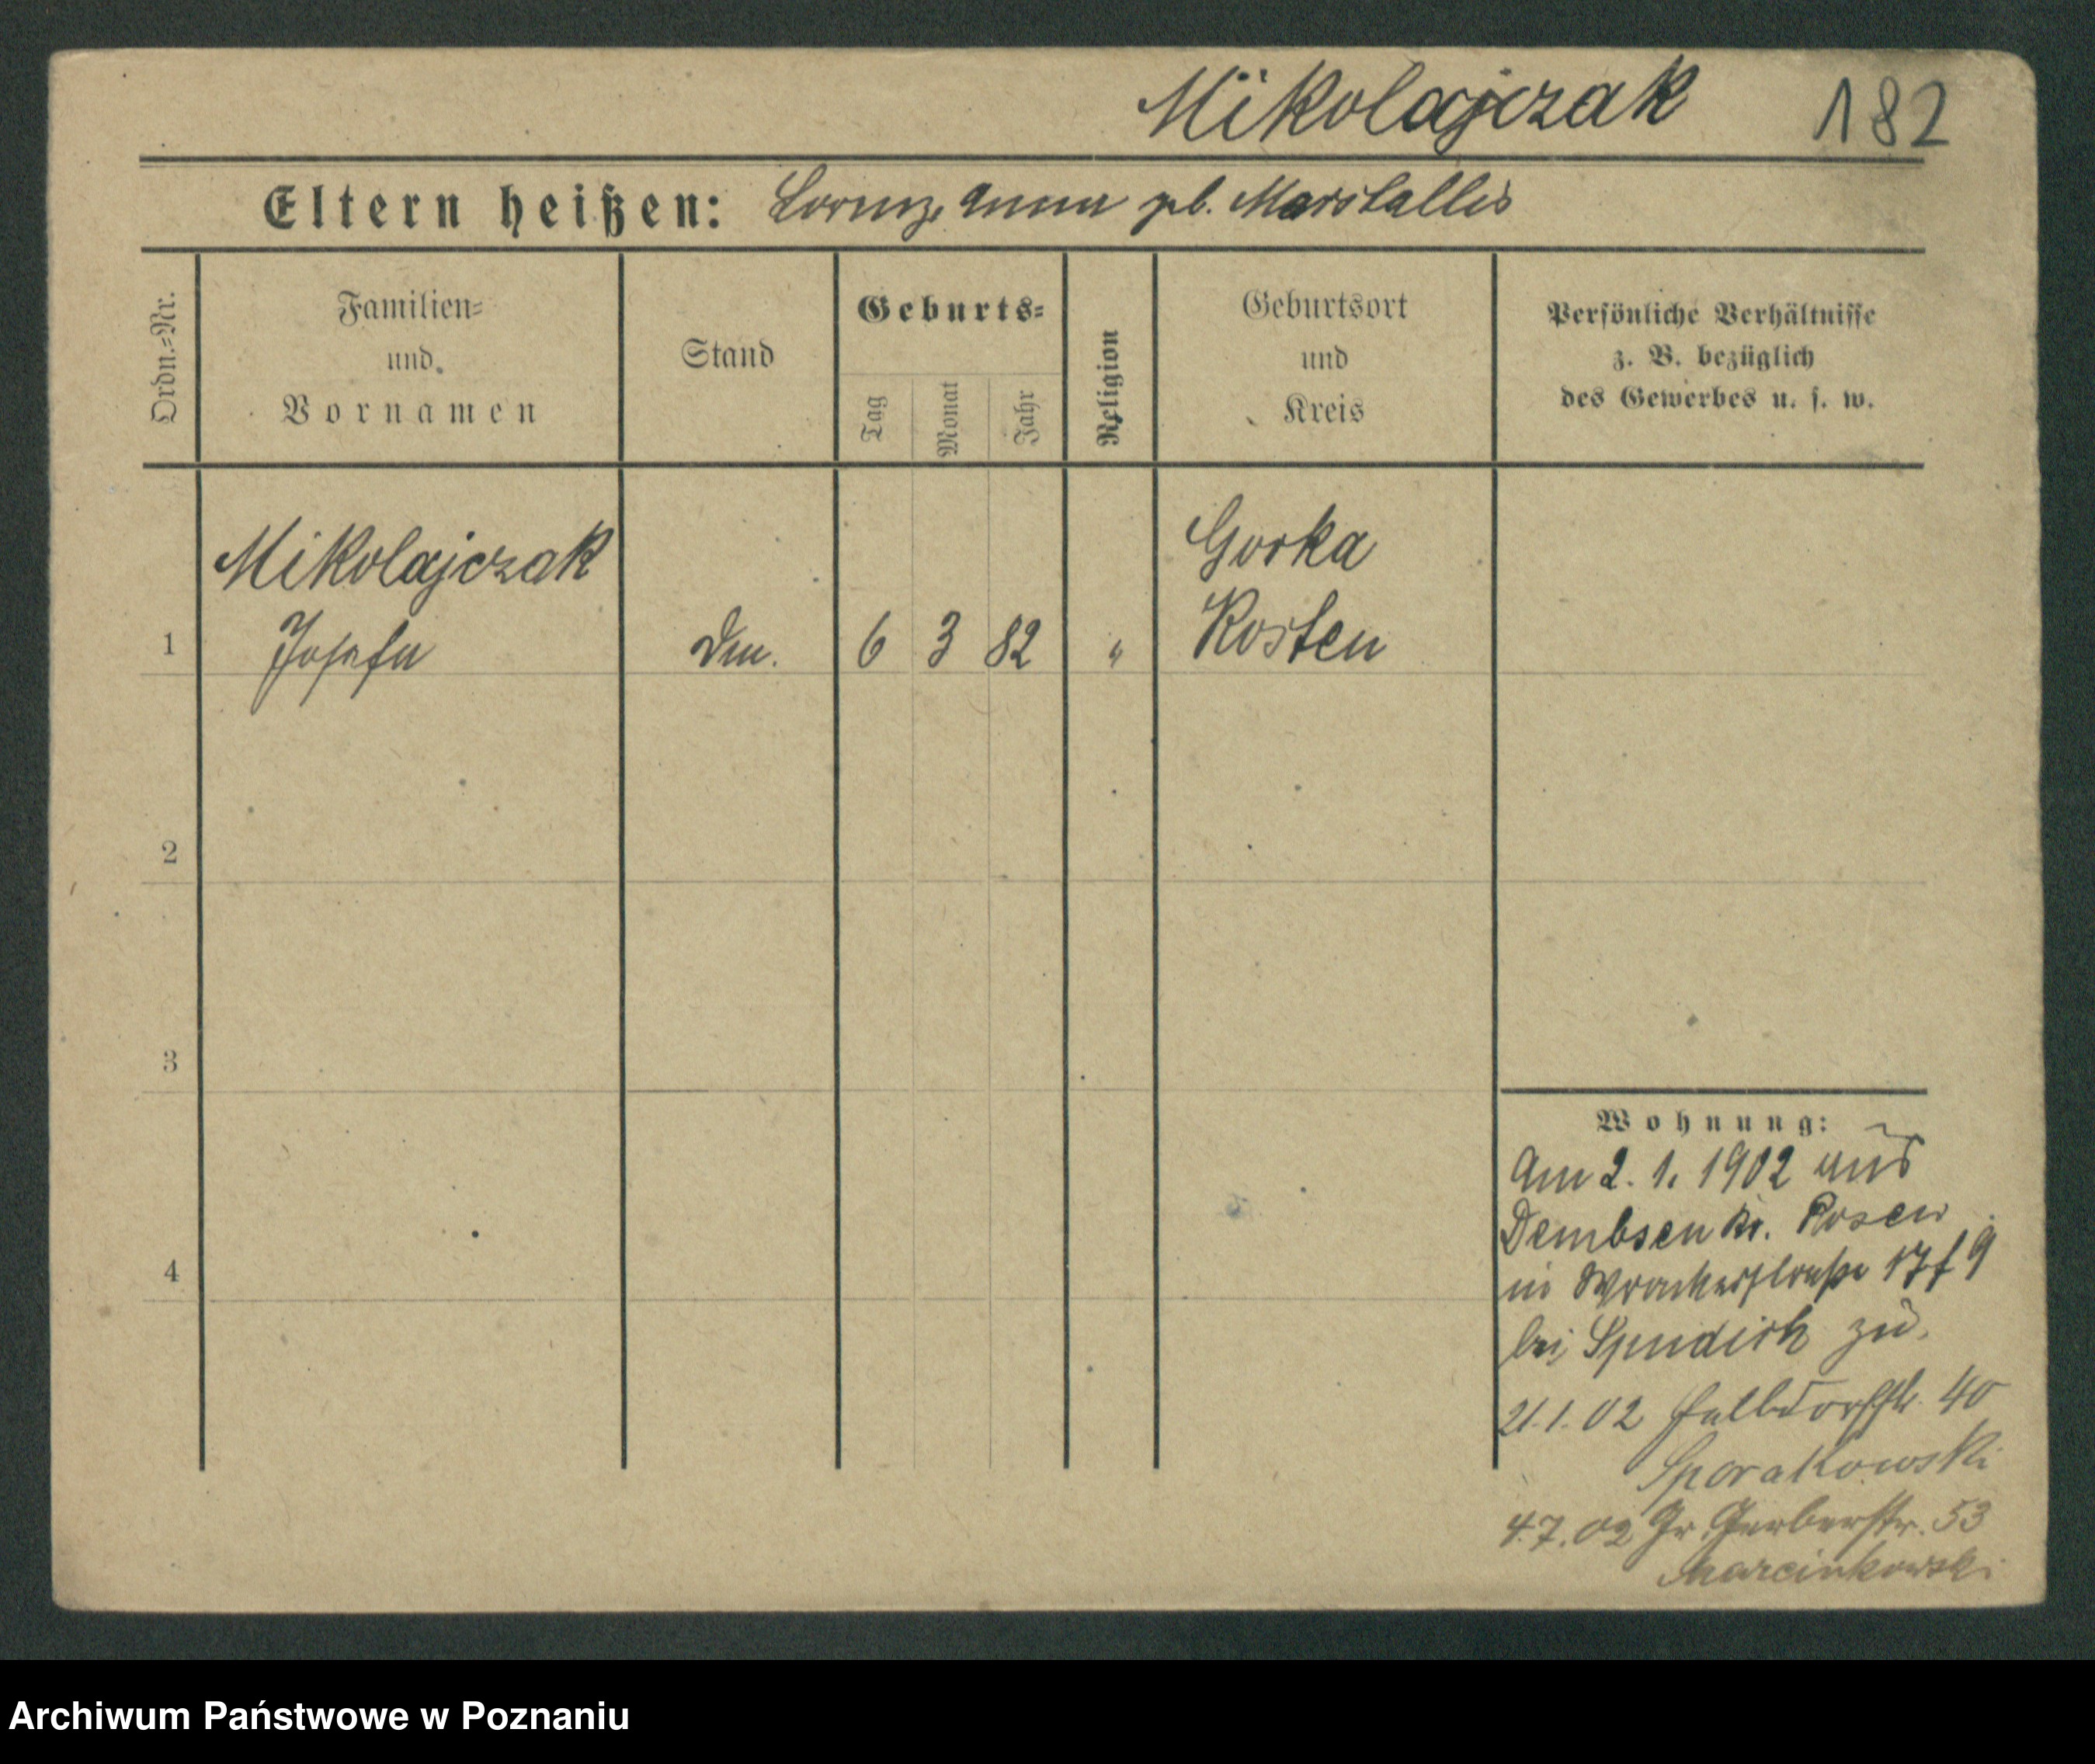 Mikolajczak 182
Eltern heißen: Lorenz, Anna geb. Marstalles
Ordn.-Nr.
Familien-
und
Vornamen
Stand
Geburts-
Tag
Monat
Jahr
Religion
Geburtsort
und
Kreis
Persönliche Verhältnisse
z. B. bezüglich
des Gewerbes u. s. w.
Mikolajczak
Gorka
1 Josefa 6 3 82 " Kosten
2
3
4
Wohnung:
Am 2. 1. 1902 aus
Dembsen Kr. Posen
in Wronkerstraße 17 9
bei zu.
21.1.02 Halbdorfstr. 40
Sporakowski
4.7.02 Gr. Gerberstr. 53
Marcinkowski
Archiwum Państwowe w Poznaniu